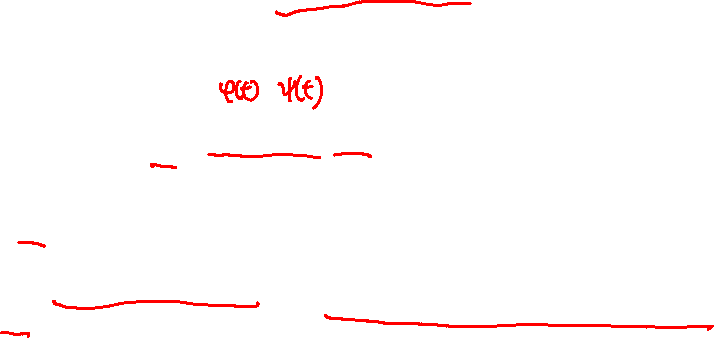 φ(t) ψ(t)